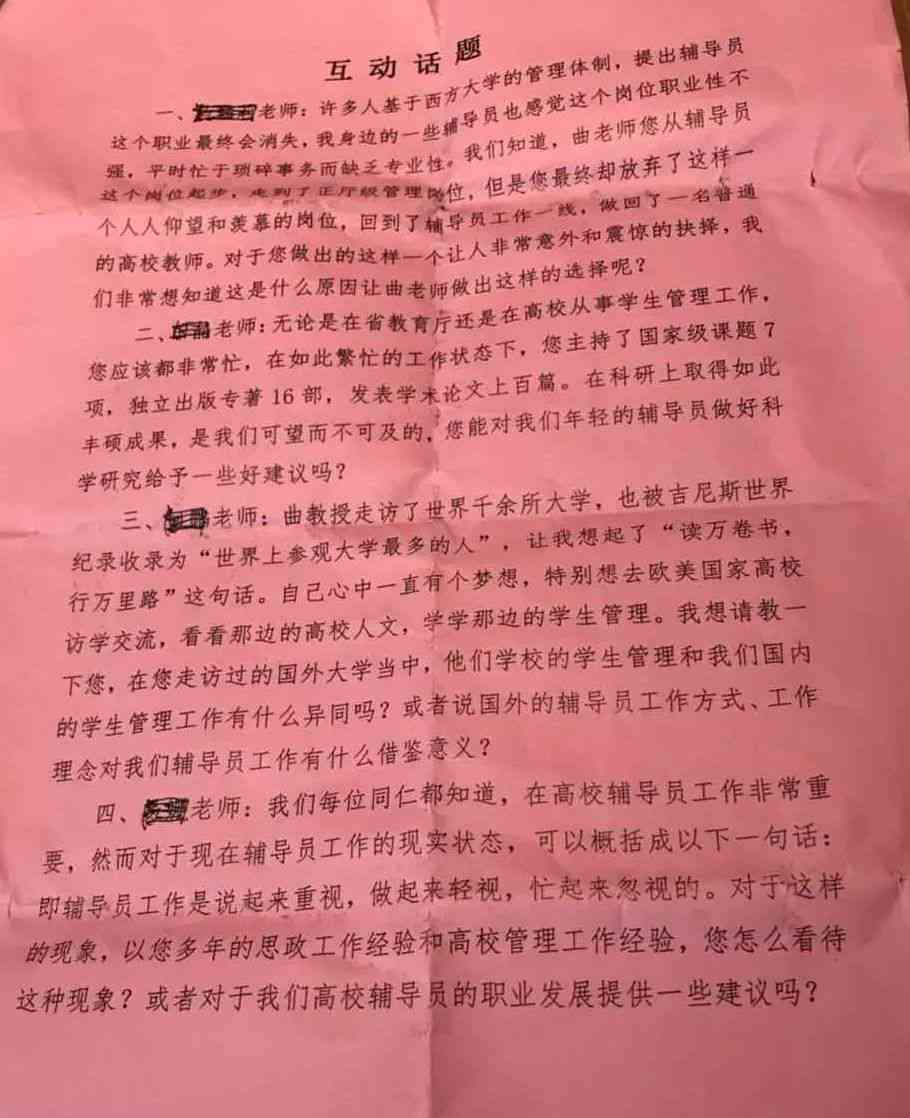 互动话题
一、老师：许多人基于西方大学的管理体制，提出辅导员
这个职业最终会消失，我身边的一些辅导员也感觉这个岗位职业性不
强，平时忙于琐碎事务而缺乏专业性。我们知道，曲老师您从辅导员
这个岗位起步，走到了正厅级管理岗位，但是您最终却放弃了这样一
个人人仰望和羡慕的岗位，回到了辅导员工作一线，做回了一名普通
的高校教师。对于您做出的这样一个让人非常意外和震惊的抉择，我
们非常想知道这是什么原因让曲老师做出这样的选择呢？
二、老师：无论是在省教育厅还是在高校从事学生管理工作，
您应该都非常忙，在如此繁忙的工作状态下，您主持了国家级课题7
项，独立出版专著16部，发表学术论文上百篇。在科研上取得如此
丰硕成果，是我们可望而不可及的，您能对我们年轻的辅导员做好科
学研究给予一些好建议吗？
三、老师：曲教授走访了世界千余所大学，也被吉尼斯世界
纪录收录为“世界上参观大学最多的人”，让我想起了“读万卷书，
行万里路”这句话。自己心中一直有个梦想，特别想去欧美国家高校
访学交流，看看那边的高校人文，学学那边的学生管理。我想请教一
下您，在您走访过的国外大学当中，他们学校的学生管理和我们国内
的学生管理工作有什么异同吗？或者说国外的辅导员工作方式、工作
理念对我们辅导员工作有什么借鉴意义？
四、老师：我们每位同仁都知道，在高校辅导员工作非常重
要，然而对于现在辅导员工作的现实状态，可以概括成以下一句话：
即辅导员工作是说起来重视，做起来轻视，忙起来忽视的。对于这样
的现象，以您多年的思政工作经验和高校管理工作经验，您怎么看待
这种现象？或者对于我们高校辅导员的职业发展提供一些建议吗？